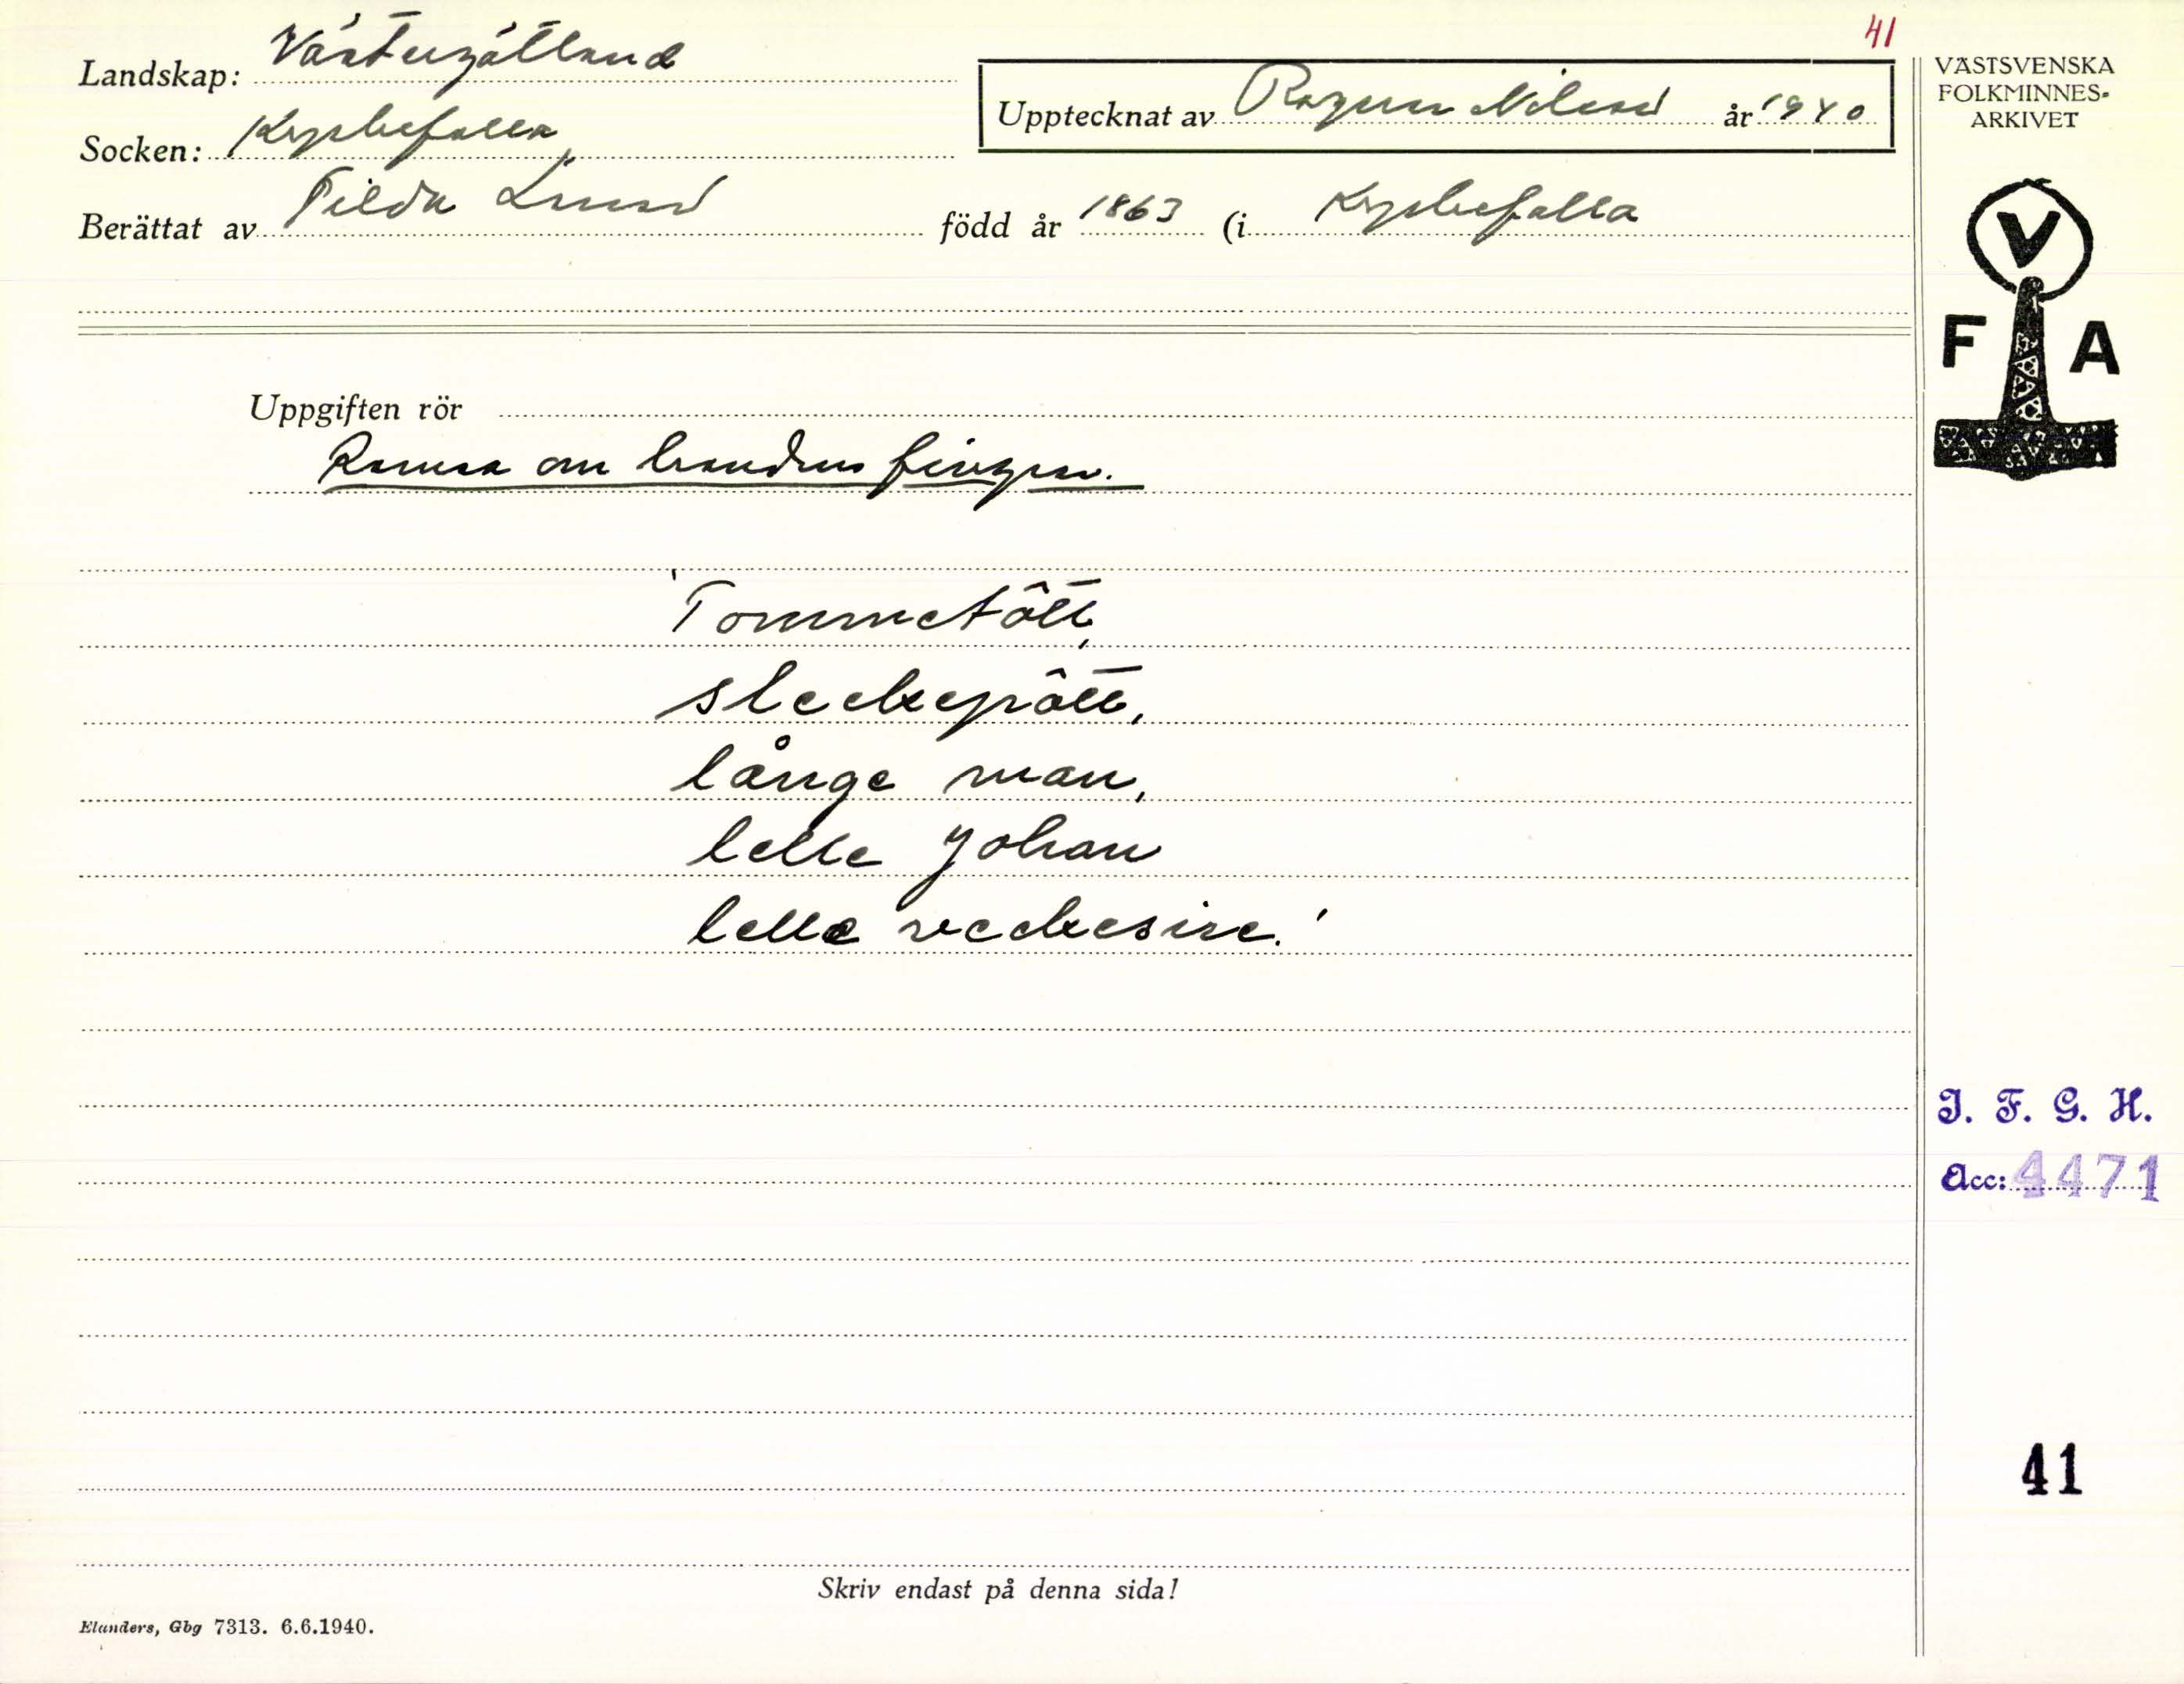 41
Landskap: Västergötland
Socken: Kyrkefalla
Upptecknat av Ragnar Nilsson år 1940
Berättat av Tilda Lund född år 1863 (i Kyrkefalla
VÄSTSVENSKA
FOLKMINNES-
ARKIVET
V
F A
Uppgiften rör
Ramsa om handens fingrar.
'Tommetôtt,
sleckepôtt,
långe man,
lelle Johan
lelle veckesire.'
I. F. G. H.
Acc: 4471
41
Skriv endast på denna sida!
Elanders, Gbg 7313. 6.6.1940.